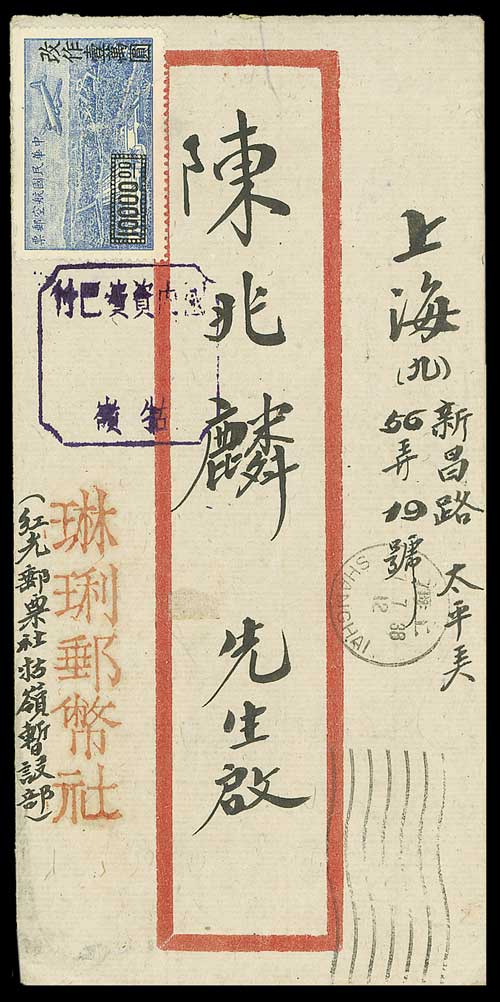 上海(九)
新昌路
56弄19號
太平美
陳兆麟先生啟
改作壹萬圓
中華民國航空郵票
10000.00
國內資費已付
牯嶺
上海
7 7 38
12
SHANGHAI
琳琍郵幣社
(紅光郵票社牯嶺暫設部)